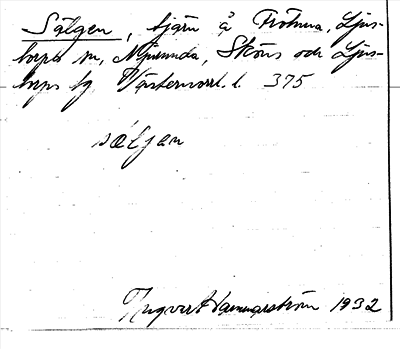 Sälgen, tjärn å Frötuna, Ljus-
torps sn, Njurunda, Sköns och Ljus-
torps tg Västernorrl. l. 375
sæljan
Yngvert Hammarström 1932